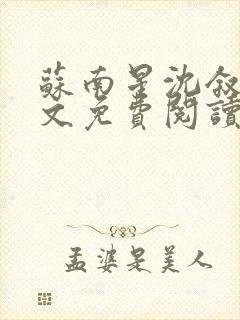 蘇南星沈敘
文免費閱讀
孟婆是美人